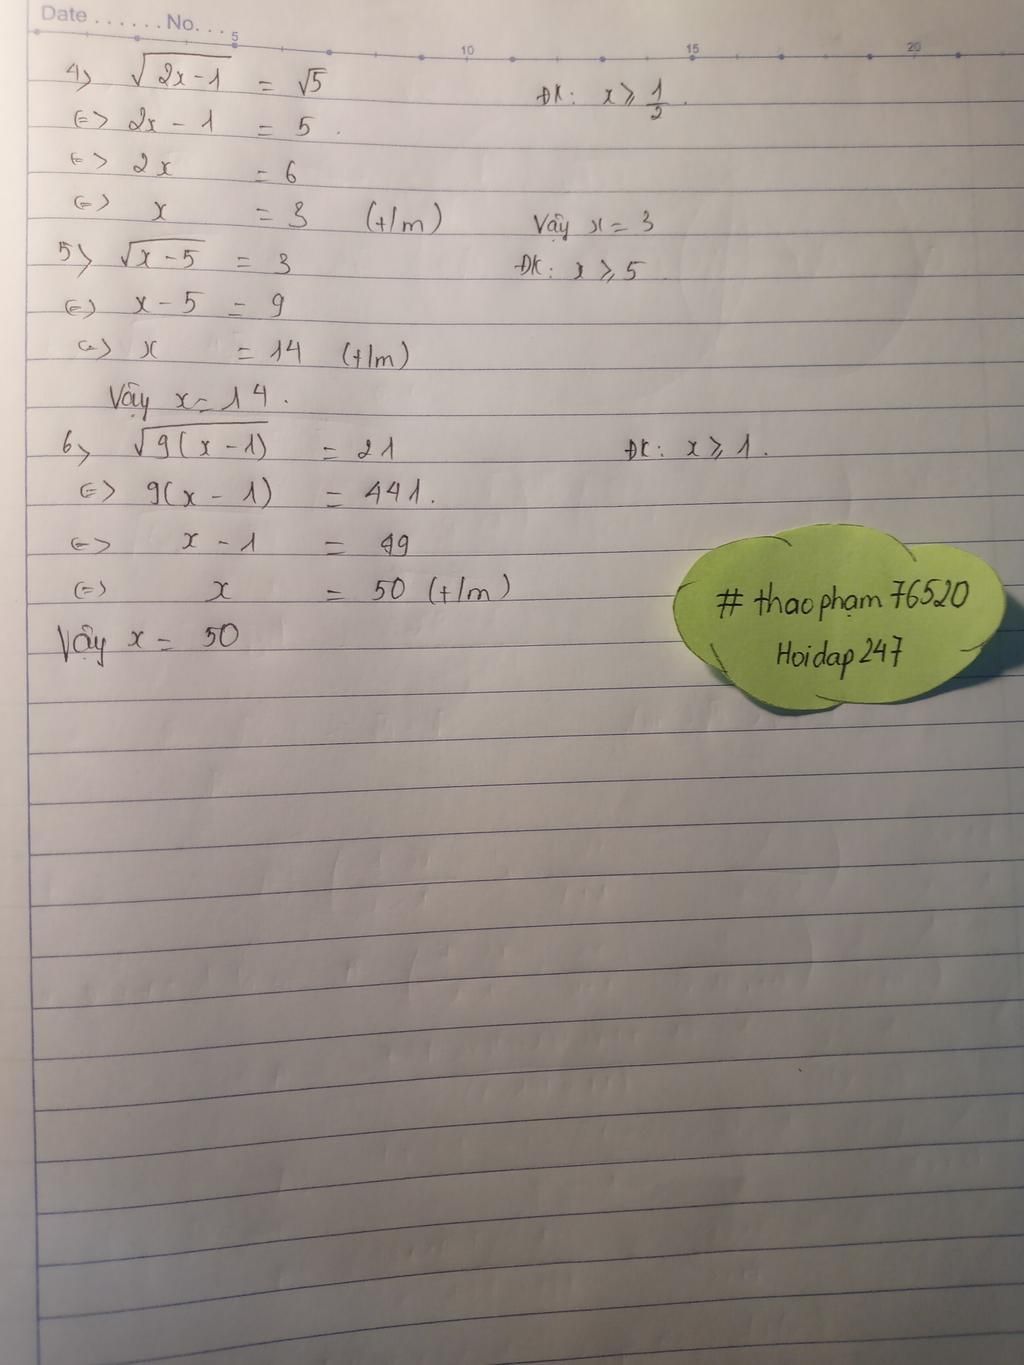 Date ...... No. ...
5 10 15 20
4> √(2x-1) = √5 ĐK: x ⩾ 1/2.
<=> 2x - 1 = 5.
<=> 2x = 6
<=> x = 3 (t/m) Vậy x = 3
5> √(x-5) = 3 ĐK: x ⩾ 5
<=> x - 5 = 9
<=> x = 14 (t/m)
Vậy x = 14.
6> √(9(x-1)) = 21 ĐK: x ⩾ 1.
<=> 9(x - 1) = 441.
<=> x - 1 = 49
<=> x = 50 (t/m)
Vậy x = 50
# thaophạm76520
Hoidap247